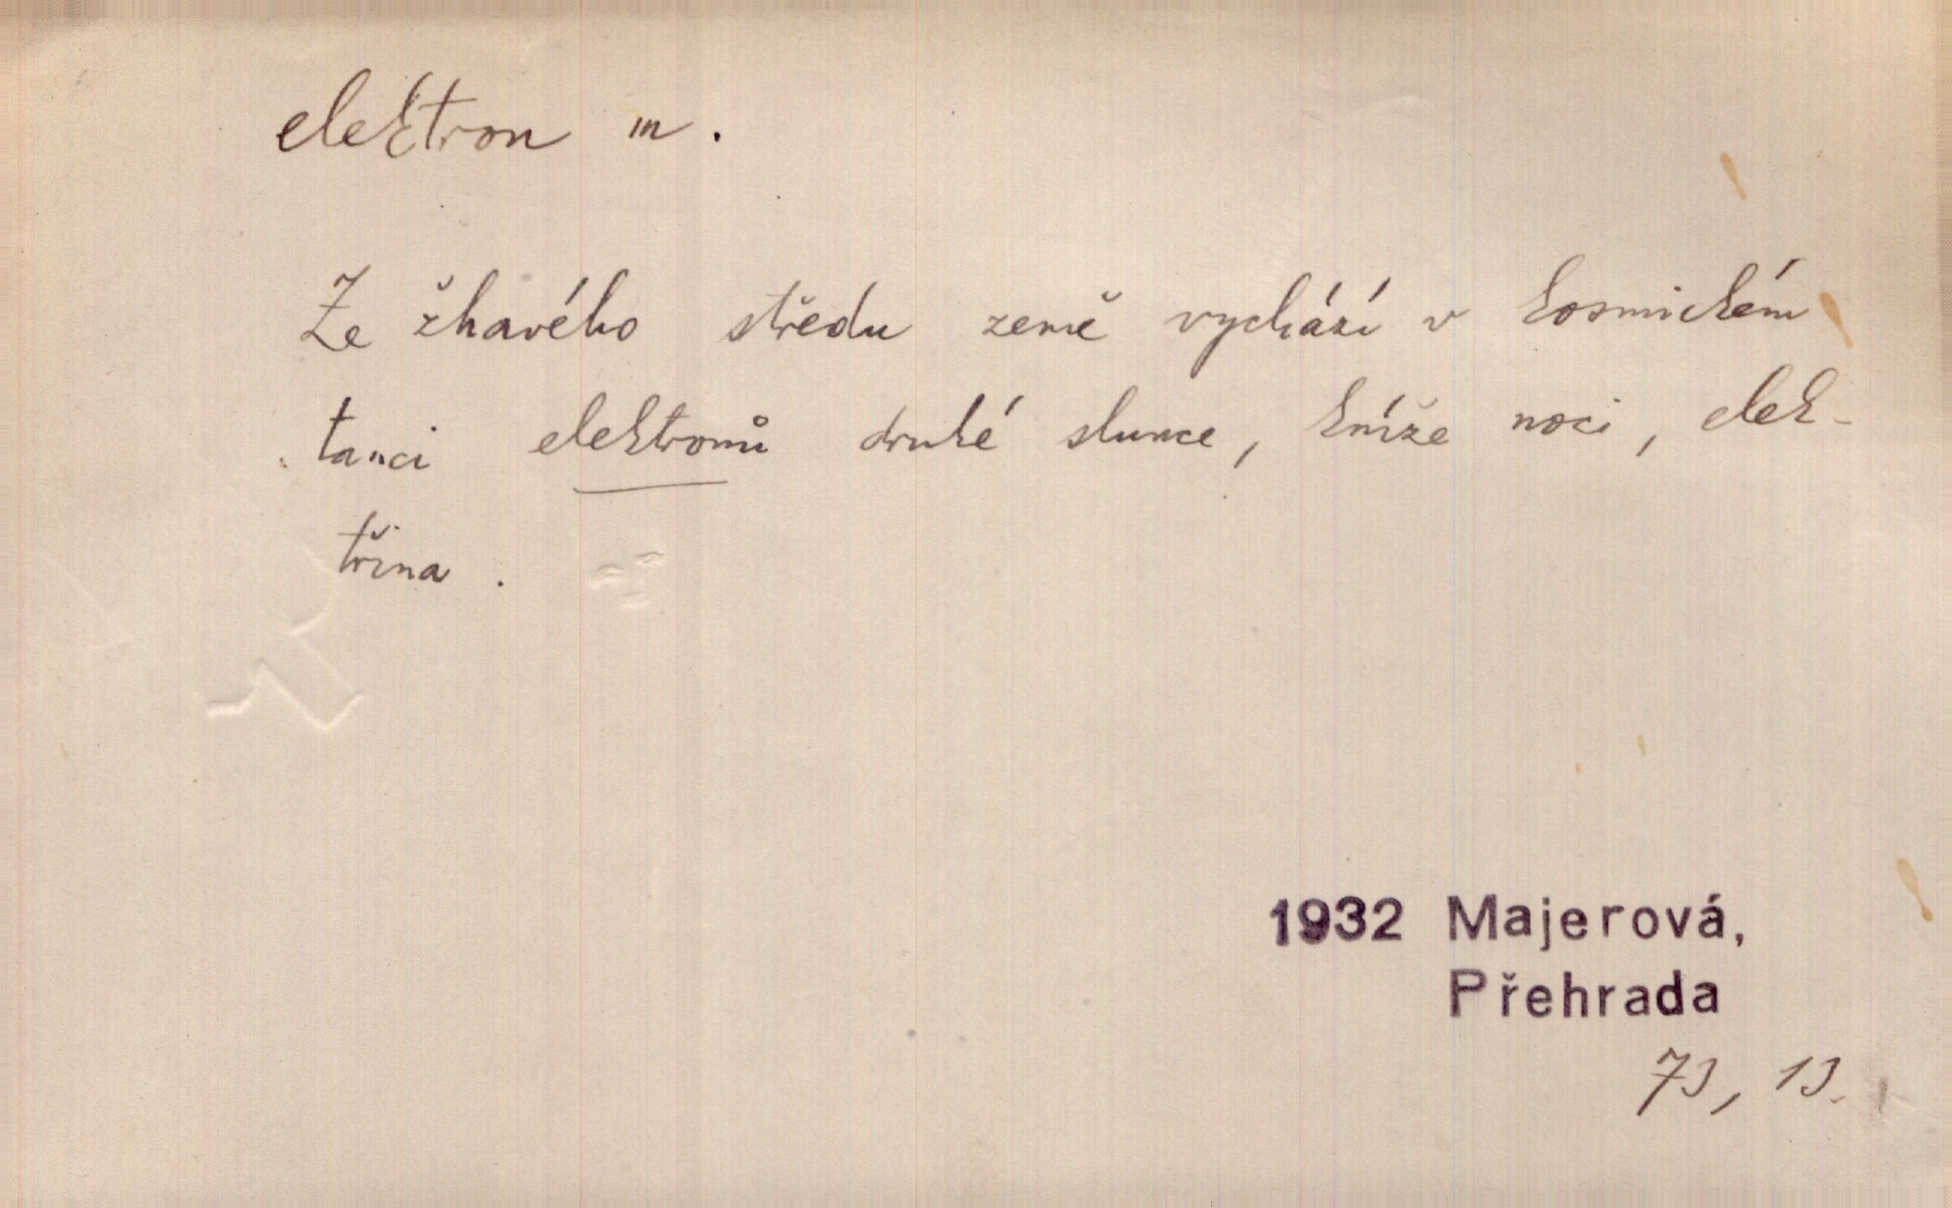 elektron m.
Ze žhavého středu země vychází v kosmickém
tanci elektronů druhé slunce, kníže noci, elek-
třina.
1932 Majerová,
Přehrada
73, 13.